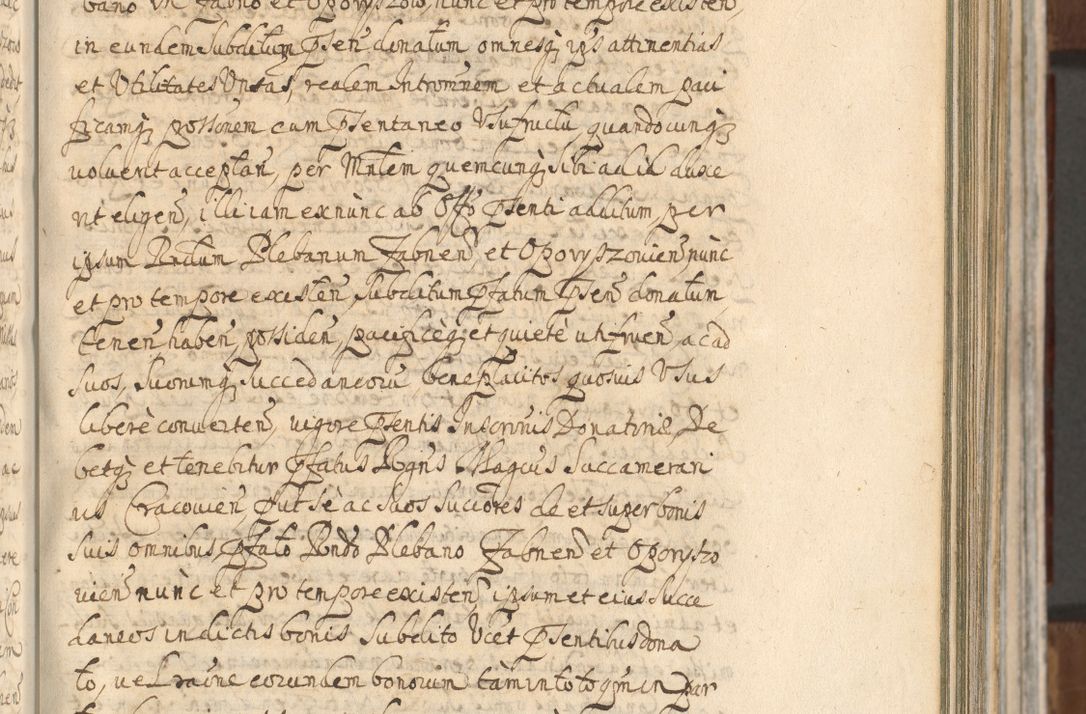 bano in Jabno et Opovyszow, nunc et pro tempore existen,
in eundem Subditum Psen donatum omnesq ips attinentias
et Utilitates Unsas, realem Intromnem et actualem paci
ficamq possionem cum Psentaneo Usufructu, quandocunq
voluerit acceptan, per Mnlem quemcunq sibi ad id duxe
rit eligen, illi iam ex nunc ab Offo Psenti additum, per
ipsum Rndum Plebanum Jabnen, et Opovyszovien, nunc
et pro tempore existen, Subditum Pfatum Psen donatum,
tenen haben, possiden, pacificèq et quietè utifruen, ac ad
suos, suorumq Succedaneorũ beneplacitos quosvis Usus
liberè converten, vigore Psentis Inscrinis Donationis, De
betq et tenebitur Pfatus Rgnus Magcus Succamerari
us Cracovien, Put sè ac suos Succores de et super bonis
suis omnibus Pfato Rndo Plebano Jabnen et Opovyszo
vien nunc et pro tempore existen, ipsum et eius Succe
daneos in dictis bonis Subdito Ucet Psentibus dona
to, ve Raine eorundem bonorum tàm in toto qm in par